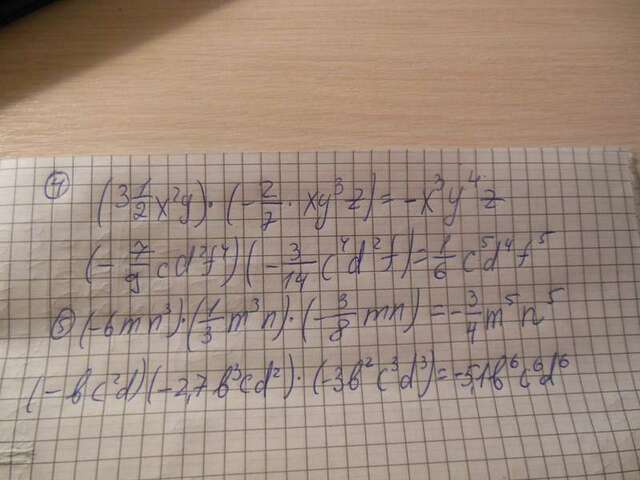 ④ (3 1/2 x²y)·(- 2/7 · xy³z) = -x³y⁴z
(- 7/9 cd²f⁴)(- 3/14 c⁴d²f) = 1/6 c⁵d⁴f⁵
⑤ (-6mn³)·(1/3 m³n)·(- 3/8 mn) = - 3/4 m⁵n⁵
(-bc²d)(-2,7b³cd²)·(-3b²c³d³) = -5,1b⁶c⁶d⁶